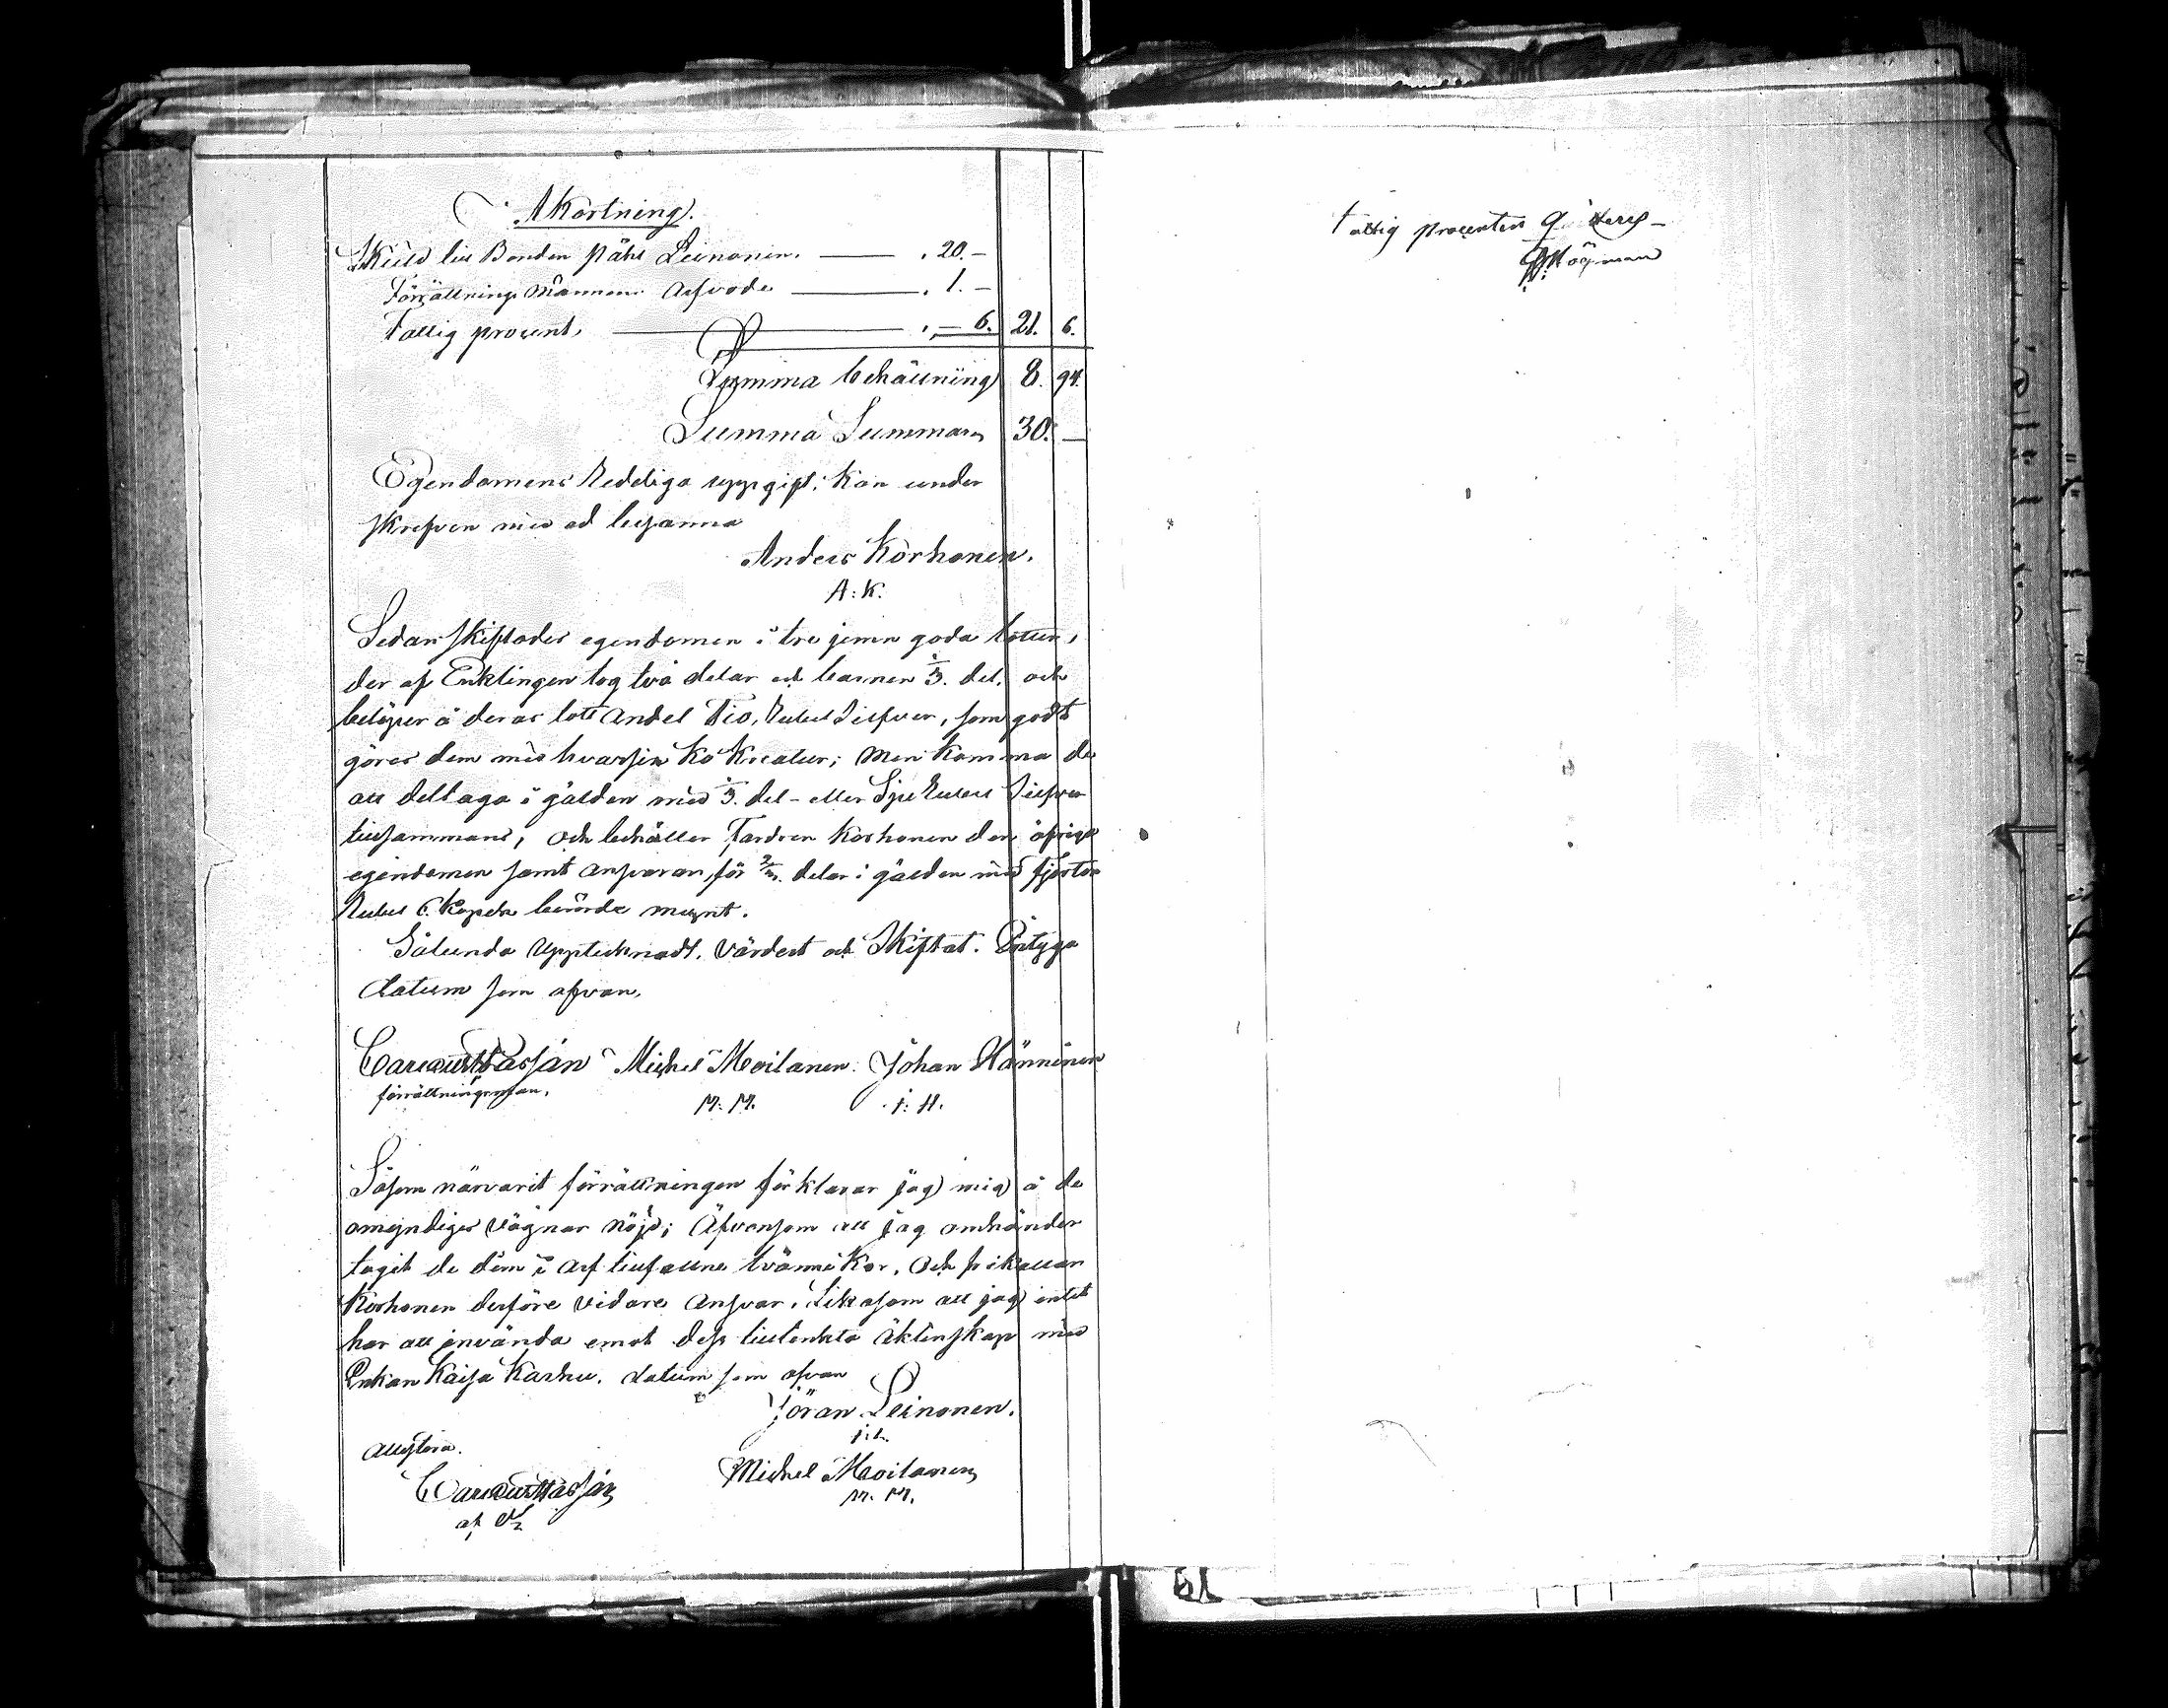 Afkortning.
Skuld till Bonden Påhl Leinonen. — „ 20. —
Förrättnings Männens Arfvode — „ 1. —
Fattig procent, — „ — 6. 21. 6.
Summa behållning 8. 94.
Summa Summarum 30. —
Egendomens Redeliga uppgift; kan under
skrifven med ed besanna
Anders Korhonen.
A: K.
Sedan skiftades egendomen i tre jemn goda lotter,
der af Enklingen tog två delar och barnen 1/3. del, och
belöper å deras lott andel Tio, Rubel Silfver, som godt
göres dem med hvarsin Ko Kreatur; men komma de
att deltaga i gälden med 1/3. del – eller Sju Rubel Silfver
tillsammans, och behåller Fardren Korhonen den öfriga
egendomen samt ansvaran för 2/3. delar i gälden med fjorton
Rubel 6. Kopek berörde mynt.
Sålunda Upptecknadt, Värdert och Skiftat. Betyga
datum som ofvan,
Michel Moilanen. Johan Hänninen
förrättningsman. M: M. J: H.
Såsom närvarit förrättningen förklarar jag mig å de
omyndiges vägnar nöjd; Äfvensom att jag omhänder
tagit de dem i Arf tillfallne tvänne Kor, och frikallar
Korhonen derföre vidare ansvar. Likasom att jag intet
har att invända emot dess tilltenkta Äktenskap med
Enkan Kaisa Karhu. datum som ofvan
Jöran Leinonen.
J: L.
Attestera.
Michel Moilanen
M: M.
Fattig procenten